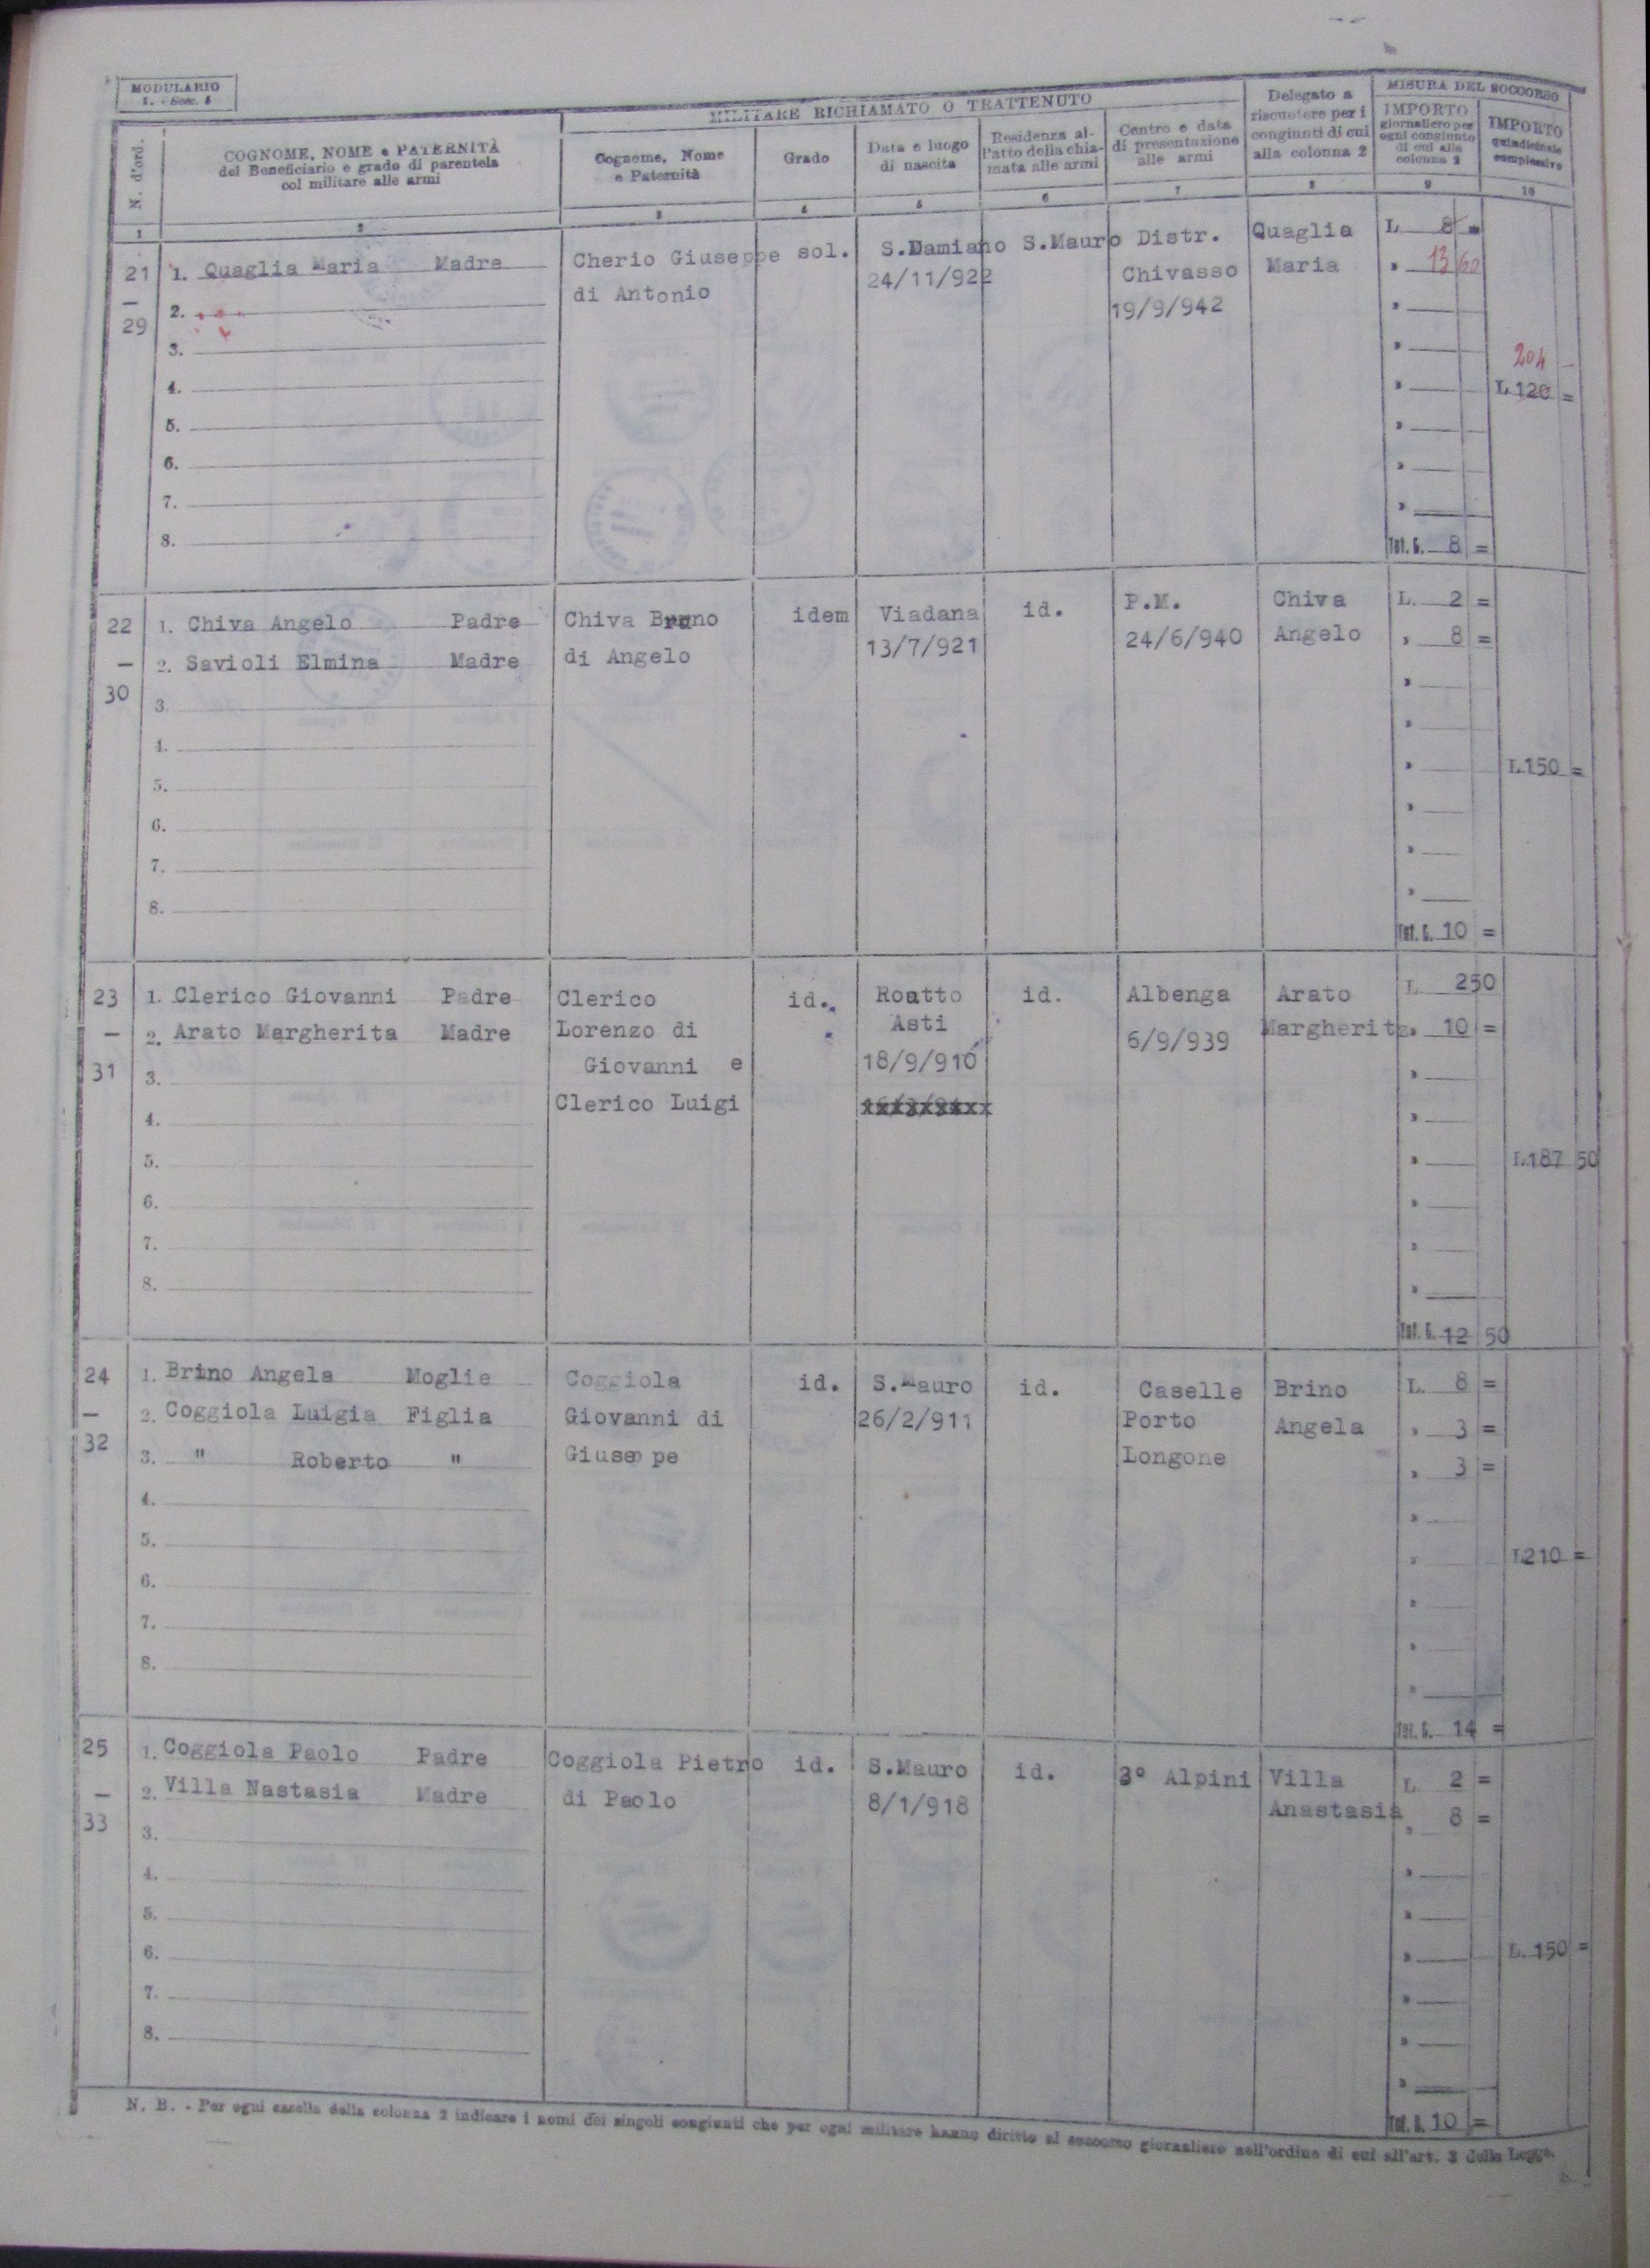 MODULARIO
I. - Socc. 5
MILITARE RICHIAMATO O TRATTENUTO
MISURA DEL SOCCORSO
N. d'ord.
COGNOME, NOME e PATERNITÀ
del Beneficiario e grado di parentela
col militare alle armi
Cognome, Nome
e Paternità
Grado
Data e luogo
di nascita
Residenza al-
l'atto della chia-
mata alle armi
Centro e data
di presentazione
alle armi
Delegato a
riscuotere per i
congiunti di cui
alla colonna 2
IMPORTO
giornaliero per
ogni congiunto
di cui alla
colonna 2
IMPORTO
quindicinale
complessivo
1 2 3 4 5 6 7 8 9 10
21
—
29
1. Quaglia Maria Madre
2.
3.
4.
5.
6.
7.
8.
Cherio Giuseppe
di Antonio
sol.
S.Damiano
24/11/922
S.Mauro
Distr.
Chivasso
19/9/942
Quaglia
Maria
L. 8 =
" 13 60
Tot. L. 8 =
204 -
L 120 =
22
—
30
1. Chiva Angelo Padre
2. Savioli Elmina Madre
3.
4.
5.
6.
7.
8.
Chiva Bruno
di Angelo
idem
Viadana
13/7/921
id.
P.M.
24/6/940
Chiva
Angelo
L. 2 =
" 8 =
Tot. L. 10 =
L.150 =
23
—
31
1. Clerico Giovanni Padre
2. Arato Margherita Madre
3.
4.
5.
6.
7.
8.
Clerico
Lorenzo di
Giovanni e
Clerico Luigi
id.
Roatto
Asti
18/9/910
id.
Albenga
6/9/939
Arato
Margherita
L. 250
" 10 =
Tot. L. 12 50
L.187 50
24
—
32
1. Brino Angela Moglie
2. Coggiola Luigia Figlia
3. " Roberto "
4.
5.
6.
7.
8.
Coggiola
Giovanni di
Giuseppe
id.
S.Mauro
26/2/911
id.
Caselle
Porto
Longone
Brino
Angela
L. 8 =
" 3 =
" 3 =
Tot. L. 14 =
L210 =
25
—
33
1. Coggiola Paolo Padre
2. Villa Nastasia Madre
3.
4.
5.
6.
7.
8.
Coggiola Pietro
di Paolo
id.
S.Mauro
8/1/918
id.
3º Alpini
Villa
Anastasia
L. 2 =
" 8 =
Tot. L. 10 =
L. 150 =
N. B. - Per ogni casella della colonna 2 indicare i nomi dei singoli congiunti che per ogni militare hanno diritto al soccorso giornaliero nell'ordine di cui all'art. 3 della Legge.